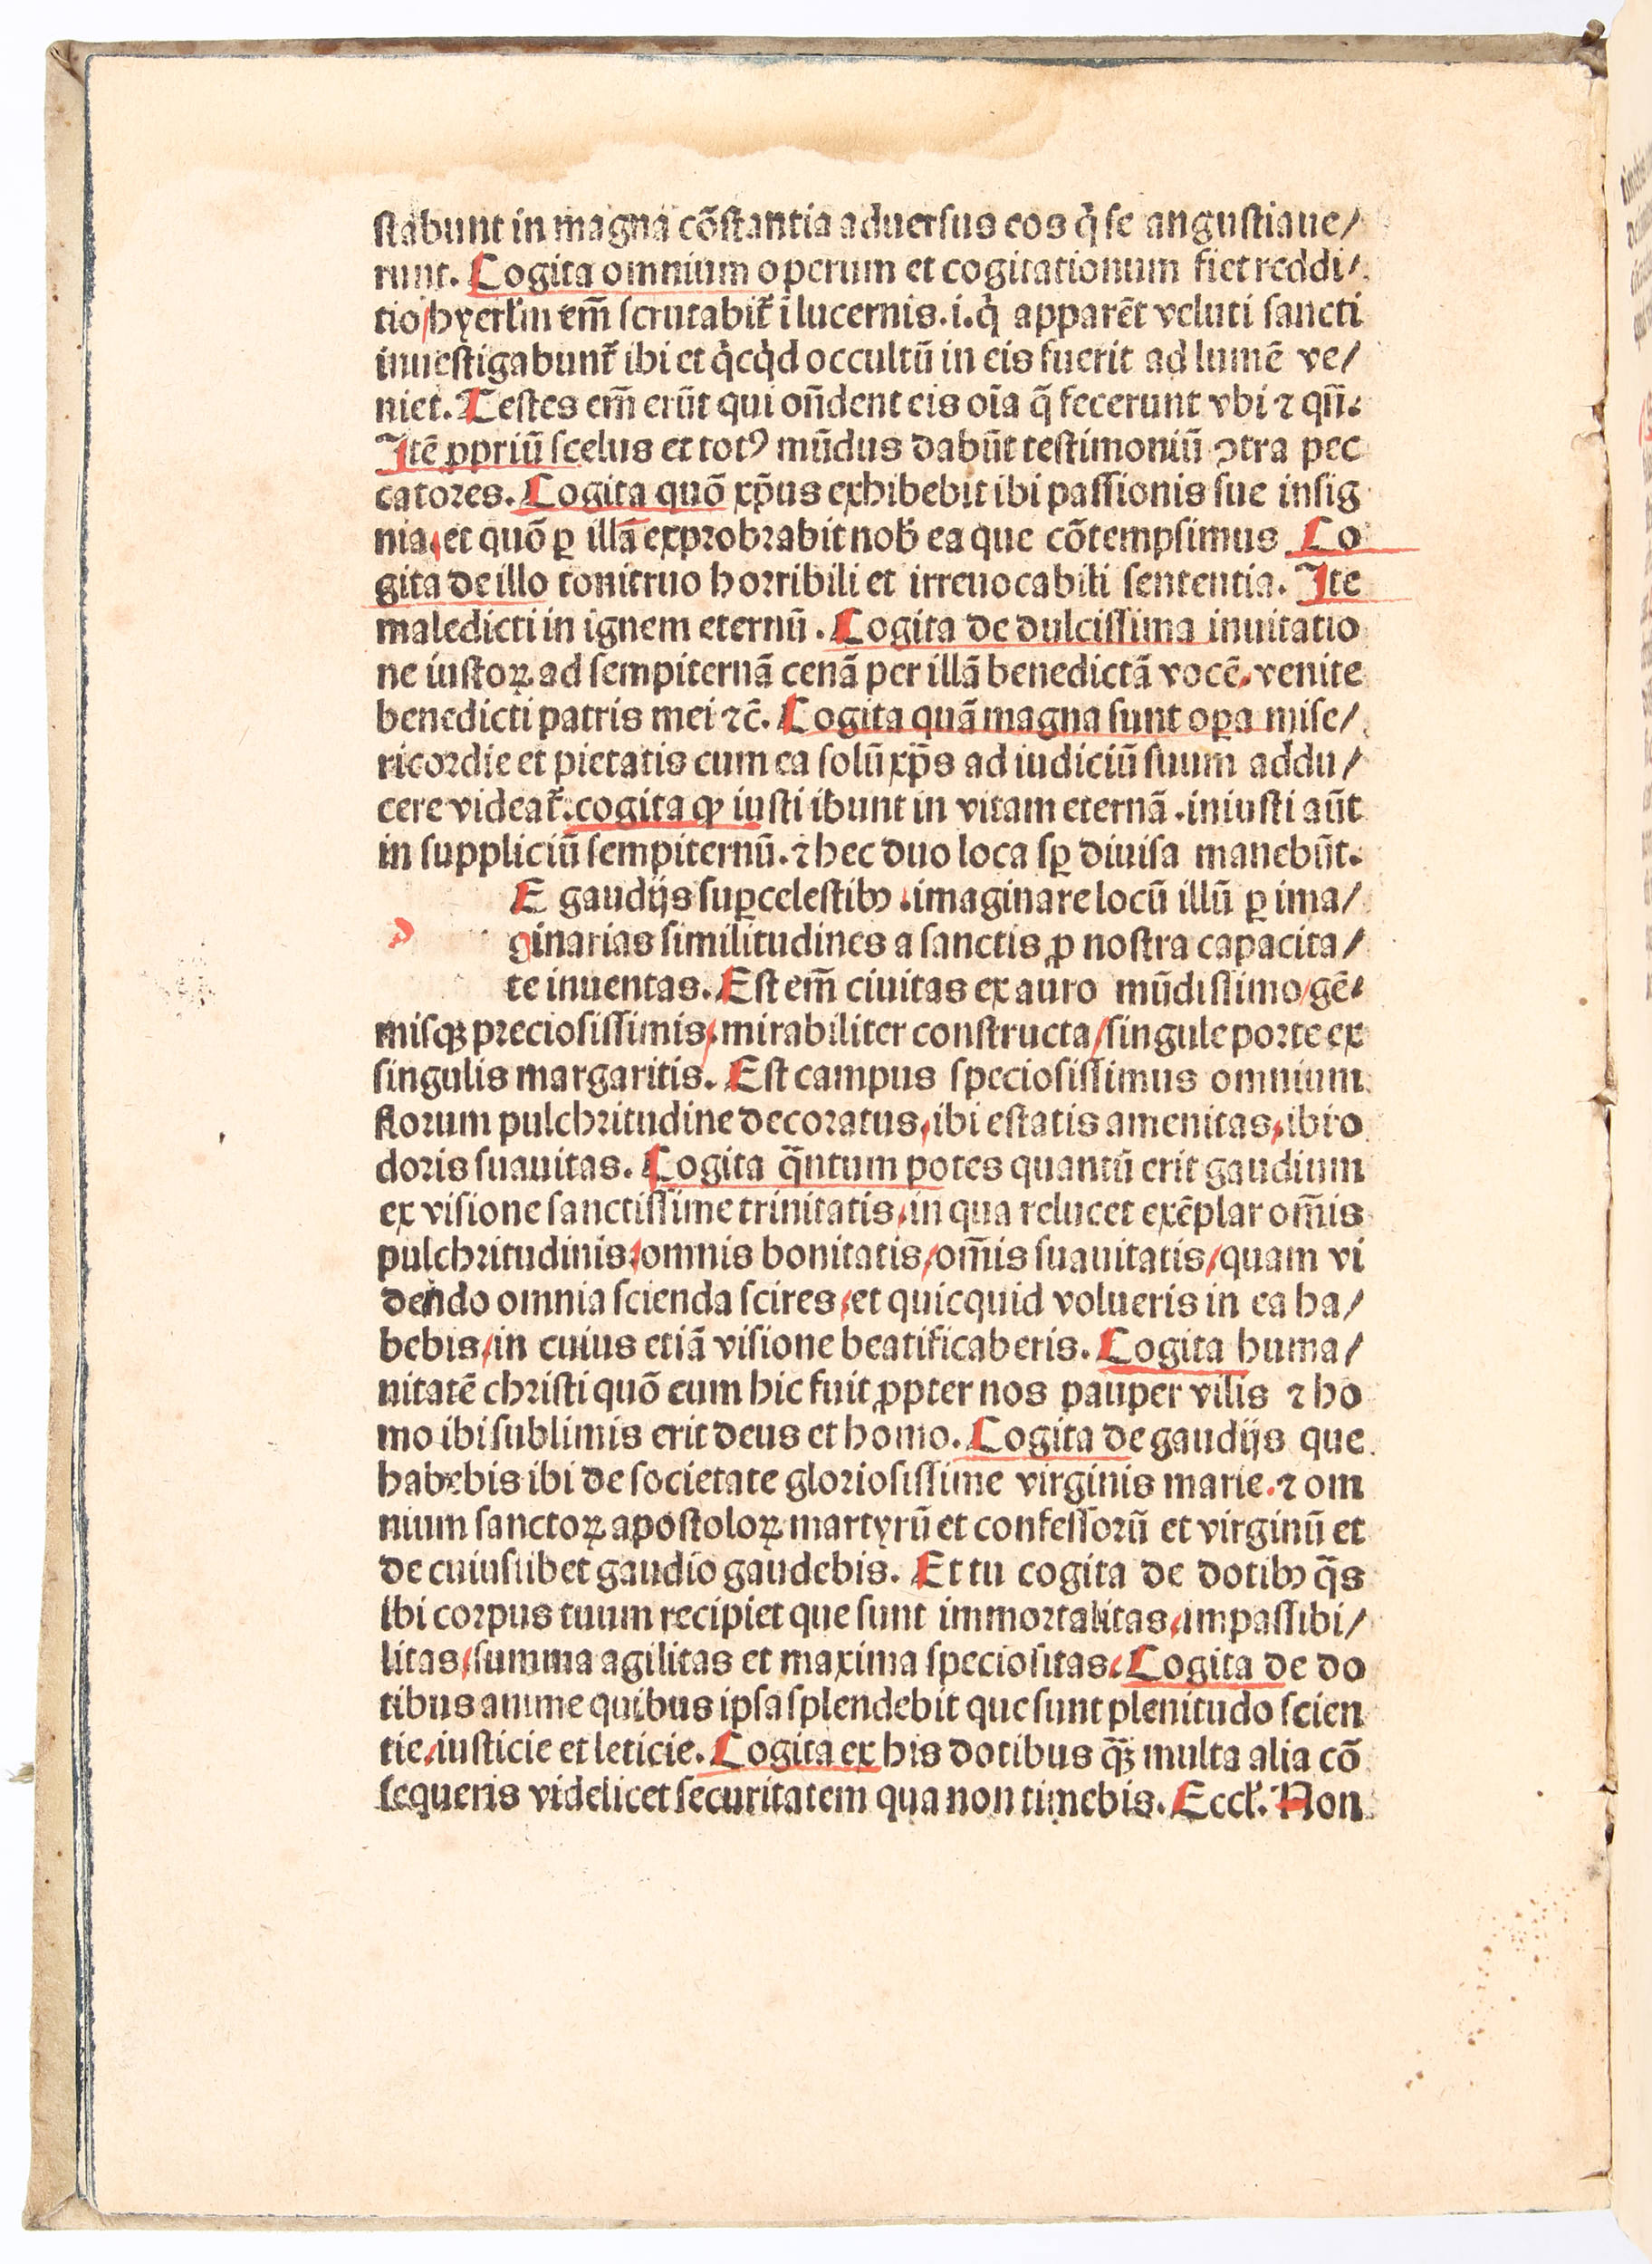 stabunt in magna cõstantia aduersus eos q̇ se angustiaue/
runt. Cogita omnium operum et cogitationum fiet reddi/
tio/hyerl̃m em̃ scrutabit̃ ĩ lucernis.i.q̇ apparẽt veluti sancti
inuestigabunt̃ ibi et q̇cq̇d occultũ in eis fuerit ad lumẽ ve/
niet. Testes em̃ erũt qui oñdent eis oĩa q̃ fecerunt vbi ⁊ qñ.
Itẽ ꝓpriũ scelus et totꝰ mũdus dabũt testimoniũ ꝯtra pec
catores. Cogita quõ xp̃us exhibebit ibi passionis sue insig
nia,et quõ ꝑ illã exprobrabit nob̃ ea que cõtempsimus Co
gita de illo tonitruo horribili et irreuocabili sententia. Ite
maledicti in ignem eternũ. Cogita de dulcissima inuitatio
ne iustoꝝ ad sempiternã cenã per illã benedictã vocẽ, venite
benedicti patris mei ⁊c̃. Cogita quã magna sunt oꝑa mise/
ricordie et pietatis cum ea solũ xp̃s ad iudiciũ suum addu/
cere videat̃. cogita ꝙ iusti ibunt in vitam eternã .iniusti aũt
in suppliciũ sempiternũ.⁊ hec duo loca sꝑ diuisa manebũt.
E gaudijs suꝑcelestibꝰ .imaginare locũ illũ ꝑ ima/
ginarias similitudines a sanctis ꝓ nostra capacita/
te inuentas. Est em̃ ciuitas ex auro mũdissimo/gẽ/
misqꝫ preciosissimis/mirabiliter constructa/singule porte ex
singulis margaritis. Est campus speciosissimus omnium
florum pulchritudine decoratus,ibi estatis amenitas,ibi o
doris suauitas. Cogita q̃ntum potes quantũ erit gaudium
ex visione sanctissime trinitatis,in qua relucet exẽplar om̃is
pulchritudinis/omnis bonitatis/om̃is suauitatis/quam vi
dendo omnia scienda scires/et quicquid volueris in ea ha/
bebis/in cuius etiã visione beatificaberis. Cogita huma/
nitatẽ christi quõ cum hic fuit ꝓpter nos pauper vilis ⁊ ho
mo ibi sublimis erit deus et homo. Cogita de gaudijs que
habebis ibi de societate gloriosissime virginis marie.⁊ om
nium sanctoꝝ apostoloꝝ martyrũ et confessorũ et virginũ et
de cuiuslibet gaudio gaudebis. Et tu cogita de dotibꝰ q̃s
ibi corpus tuum recipiet que sunt immortalitas,impassibi/
litas/summa agilitas et maxima speciositas. Cogita de do
tibus anime quibus ipsa splendebit que sunt plenitudo scien
tie/iusticie et leticie. Cogita ex his dotibus q̃ꝫ multa alia cõ
sequeris videlicet securitatem qua non timebis. Eccl̃. Non